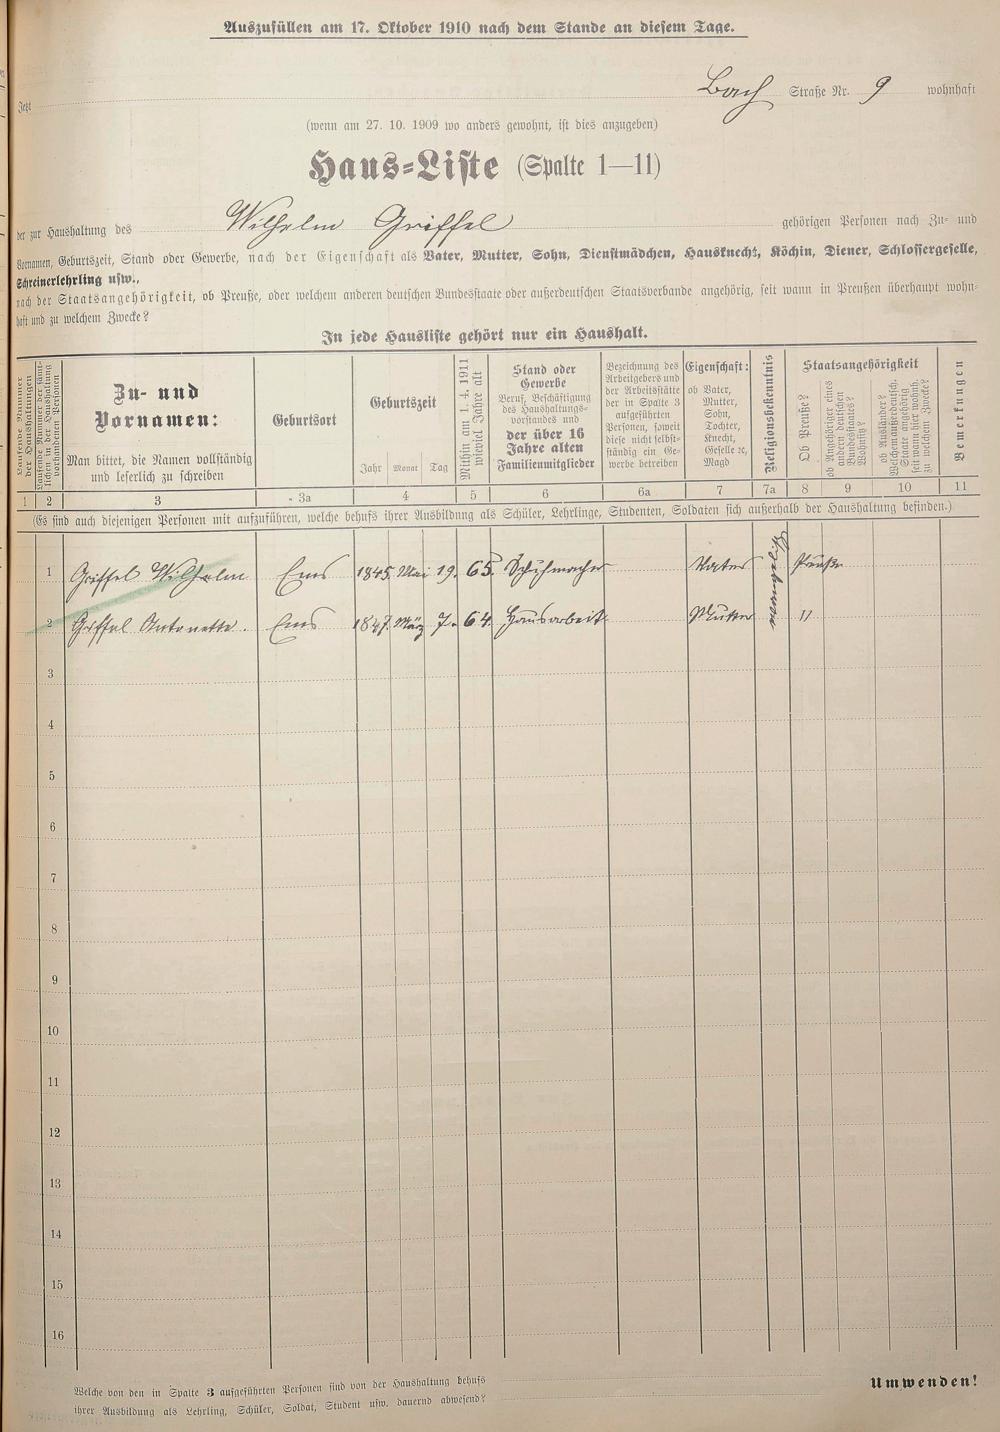 Auszufüllen am 17. Oktober 1910 nach dem Stande an diesem Tage.
Jetzt Bach Straße Nr. 9 wohnhaft
(wenn am 27. 10. 1909 wo anders gewohnt, ist dies anzugeben)
Haus-Liste (Spalte 1—11)
der zur Haushaltung des Wilhelm Griffel gehörigen Personen nach Zu- und
Vornamen, Geburtszeit, Stand oder Gewerbe, nach der Eigenschaft als Vater, Mutter, Sohn, Dienstmädchen, Hausknecht, Köchin, Diener, Schlossergeselle,
Schreinerlehrling usw.,
nach der Staatsangehörigkeit, ob Preuße, oder welchem anderen deutschen Bundesstaate oder außerdeutschen Staatsverbande angehörig, seit wann in Preußen überhaupt wohn-
haft und zu welchem Zwecke?
In jede Hausliste gehört nur ein Haushalt.
Laufende Nummer
der Haushaltungen
Laufende Nummer der sämt-
lichen in der Haushaltung
vorhandenen Personen
Zu- und
Vornamen:
Man bittet, die Namen vollständig
und leserlich zu schreiben
Geburtsort
Geburtszeit
Jahr Monat Tag
Mithin am 1. 4. 1911
wieviel Jahre alt
Stand oder
Gewerbe
Beruf, Beschäftigung
des Haushaltungs-
vorstandes und
der über 16
Jahre alten
Familienmitglieder
Bezeichnung des
Arbeitgebers und
der Arbeitsstätte
der in Spalte 3
aufgeführten
Personen, soweit
diese nicht selbst-
ständig ein Ge-
werbe betreiben
Eigenschaft:
ob Vater,
Mutter,
Sohn,
Tochter,
Knecht,
Geselle ec,
Magd
Religionsbekenntnis
Staatsangehörigkeit
Ob Preuße?
ob Angehöriger eines
andern deutschen
Bundesstaates?
Wohnsitz?
ob Ausländer?
Welchem außerdeutsch.
Staate angehörig
seit wann hier wohnh.
zu welchem Zwecke?
Bemerkungen
1 2 3 3a 4 5 6 6a 7 7a 8 9 10 11
(Es sind auch diejenigen Personen mit aufzuführen, welche behufs ihrer Ausbildung als Schüler, Lehrlinge, Studenten, Soldaten sich außerhalb der Haushaltung befinden.)
1 Griffel Wilhelm Ems 1845. Mai 19. 65. Schuhmacher Vater evangelisch Preuße
2 Griffel Antonette. Ems 1847. März 7. 64. Hausarbeit. Mutter "
3
4
5
6
7
8
9
10
11
12
13
14
15
16
Welche von den in Spalte 3 aufgeführten Personen sind von der Haushaltung behufs
ihrer Ausbildung als Lehrling, Schüler, Soldat, Student usw. dauernd abwesend?
Umwenden!